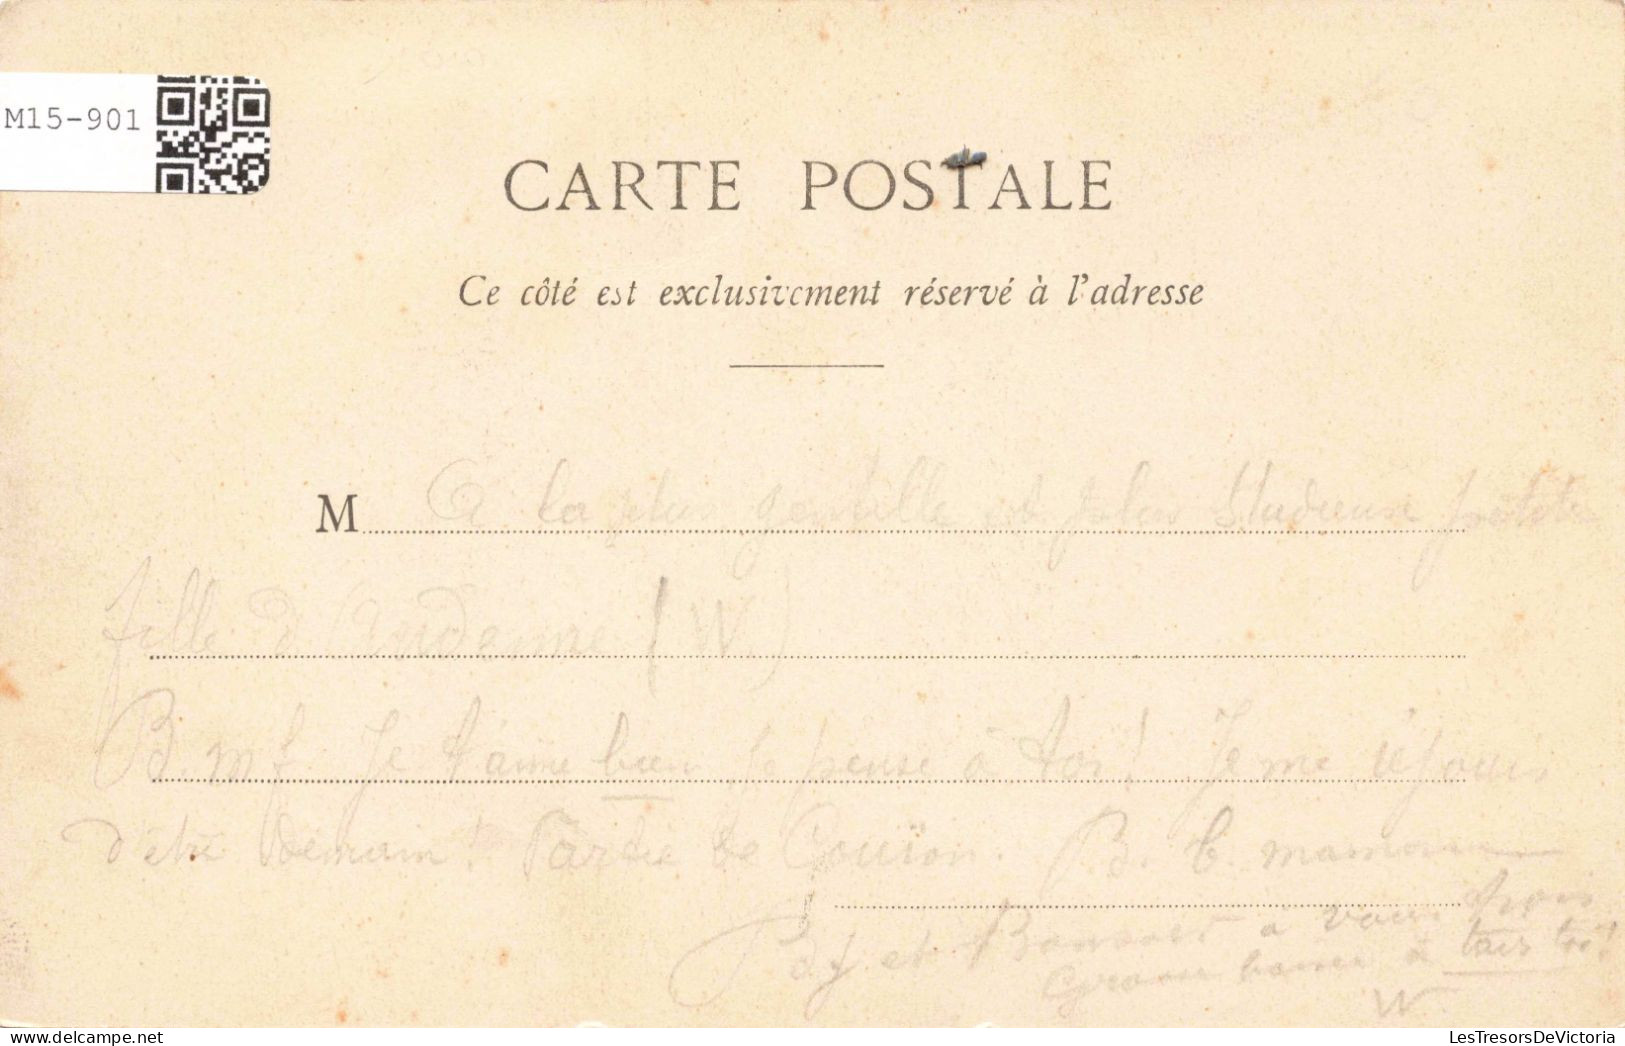 M15-901
CARTE POSTALE
Ce côté est exclusivement réservé à l'adresse
M A la plus gentille et plus studieuse petite
fille d'Andenne (W.)
B. m f. Je t'aime bien, je pense à toi! Je me réjouis
d'être demain! Partie de Couïon. B. b. maman
B f et Bonsoir à vous trois
Gros baiser à
W
LesTresorsDeVictoria